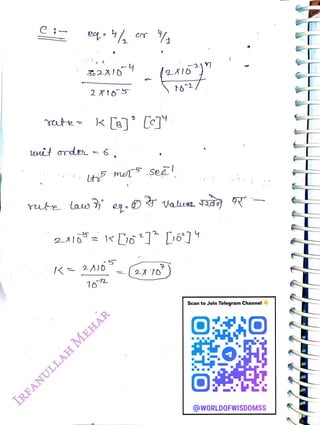 C :—
eq. 4/2 or 4/1
3.2×10⁻⁴ / 2×10⁻⁵ = (2×10⁻² / 10⁻²)ⁿ
rate = K [B]² [C]⁴
unit order = 6 .
ltr⁵ mol⁻⁵ sec⁻¹
rate law में eq. ① से value रखने पर —
2×10⁻⁵ = K [10⁻²]² [10⁻²]⁴
K = 2×10⁻⁵ / 10⁻¹² = (2×10⁷)
IRFANULLAH MEHAR
Scan to Join Telegram Channel
@WORLDOFWISDOMSS